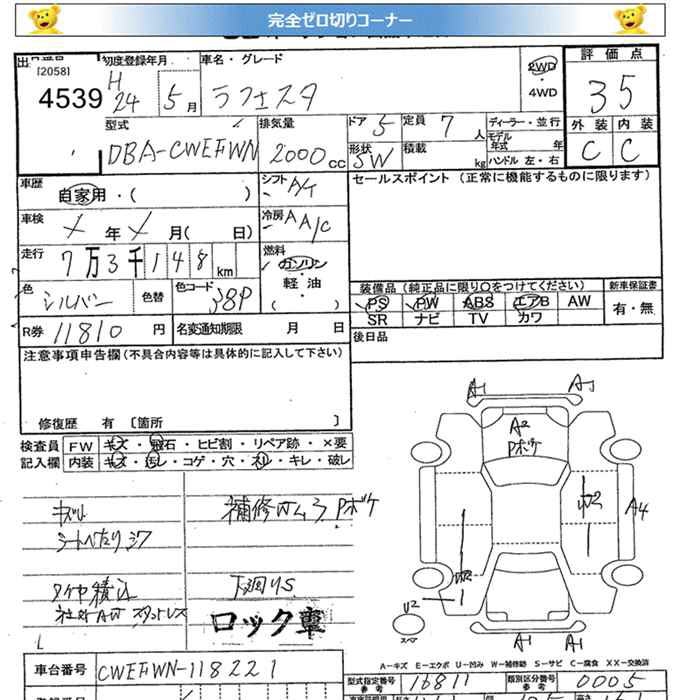 完全ゼロ切りコーナー
出品番号 初度登録年月 車名・グレード 評価点
[2058]
4539 H24 5月 ラフェスタ 2WD ・4WD 35
型式 排気量 ドア 5 定員 7人 ディーラー・並行 外装 内装
DBA-CWEFWN 2000cc 形状 SW 積載 kg モデル年式 年 C C
ハンドル 左・右
車歴 自家用・( ) シフト A/T セールスポイント (正常に機能するものに限ります)
車検 メ年メ月( 日) 冷房 A A/C
走行 7万3千148km 燃料 ガソリン 軽・油 ( )
色 シルバー 色替 色コード 38P 装備品(純正品に限り○をつけてください) 新車保証書
PS PW ABS エアB AW 有・無
SR ナビ TV カワ
R券 11810円 名変通知期限 月 日 後日品
注意事項申告欄(不具合内容等は具体的に記入して下さい)
修復歴 有 〔箇所 〕
検査員 FW キズ・飛石・ヒビ割・リペア跡・×要
記入欄 内装 キズ・汚レ・コゲ・穴・スレ・キレ・破レ
シートへたり シワ
補修ムラ Pボケ
タイヤ積込
下廻りS
ロック車
A1 A1
A2
Pボケ
A4
U2
スペア
A1 A1
A-キズ E-エクボ U-凹み W-補修跡 S-サビ C-腐食 XX-交換済
車台番号 CWEFWN-118221
型式指定番号 参考 16811 類別区分番号 参考 0005